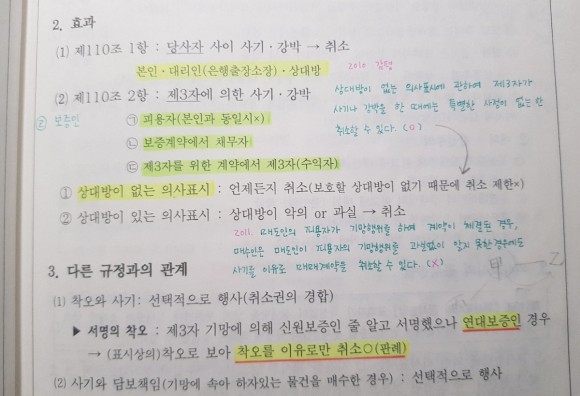 2. 효과
(1) 제110조 1항 : 당사자 사이 사기·강박 → 취소
본인·대리인(은행출장소장)·상대방
2010 감평
(2) 제110조 2항 : 제3자에 의한 사기·강박
상대방이 없는 의사표시에 관하여 제3자가
사기나 강박을 한 때에는 특별한 사정이 없는 한
취소할 수 있다. (O)
예) 보증인
㉠ 피용자(본인과 동일시×)
㉡ 보증계약에서 채무자
㉢ 제3자를 위한 계약에서 제3자(수익자)
① 상대방이 없는 의사표시 : 언제든지 취소(보호할 상대방이 없기 때문에 취소 제한×)
② 상대방이 있는 의사표시 : 상대방이 악의 or 과실 → 취소
2011. 매도인의 피용자가 기망행위를 하여 계약이 체결된 경우,
매수인은 매도인이 피용자의 기망행위를 과실없이 알지 못한 경우에도
사기를 이유로 매매계약을 취소할 수 있다. (X)
3. 다른 규정과의 관계
甲 乙
(1) 착오와 사기 : 선택적으로 행사(취소권의 경합)
▶ 서명의 착오 : 제3자 기망에 의해 신원보증인 줄 알고 서명했으나 연대보증인 경우
→ (표시상의)착오로 보아 착오를 이유로만 취소○(판례)
(2) 사기와 담보책임(기망에 속아 하자있는 물건을 매수한 경우) : 선택적으로 행사